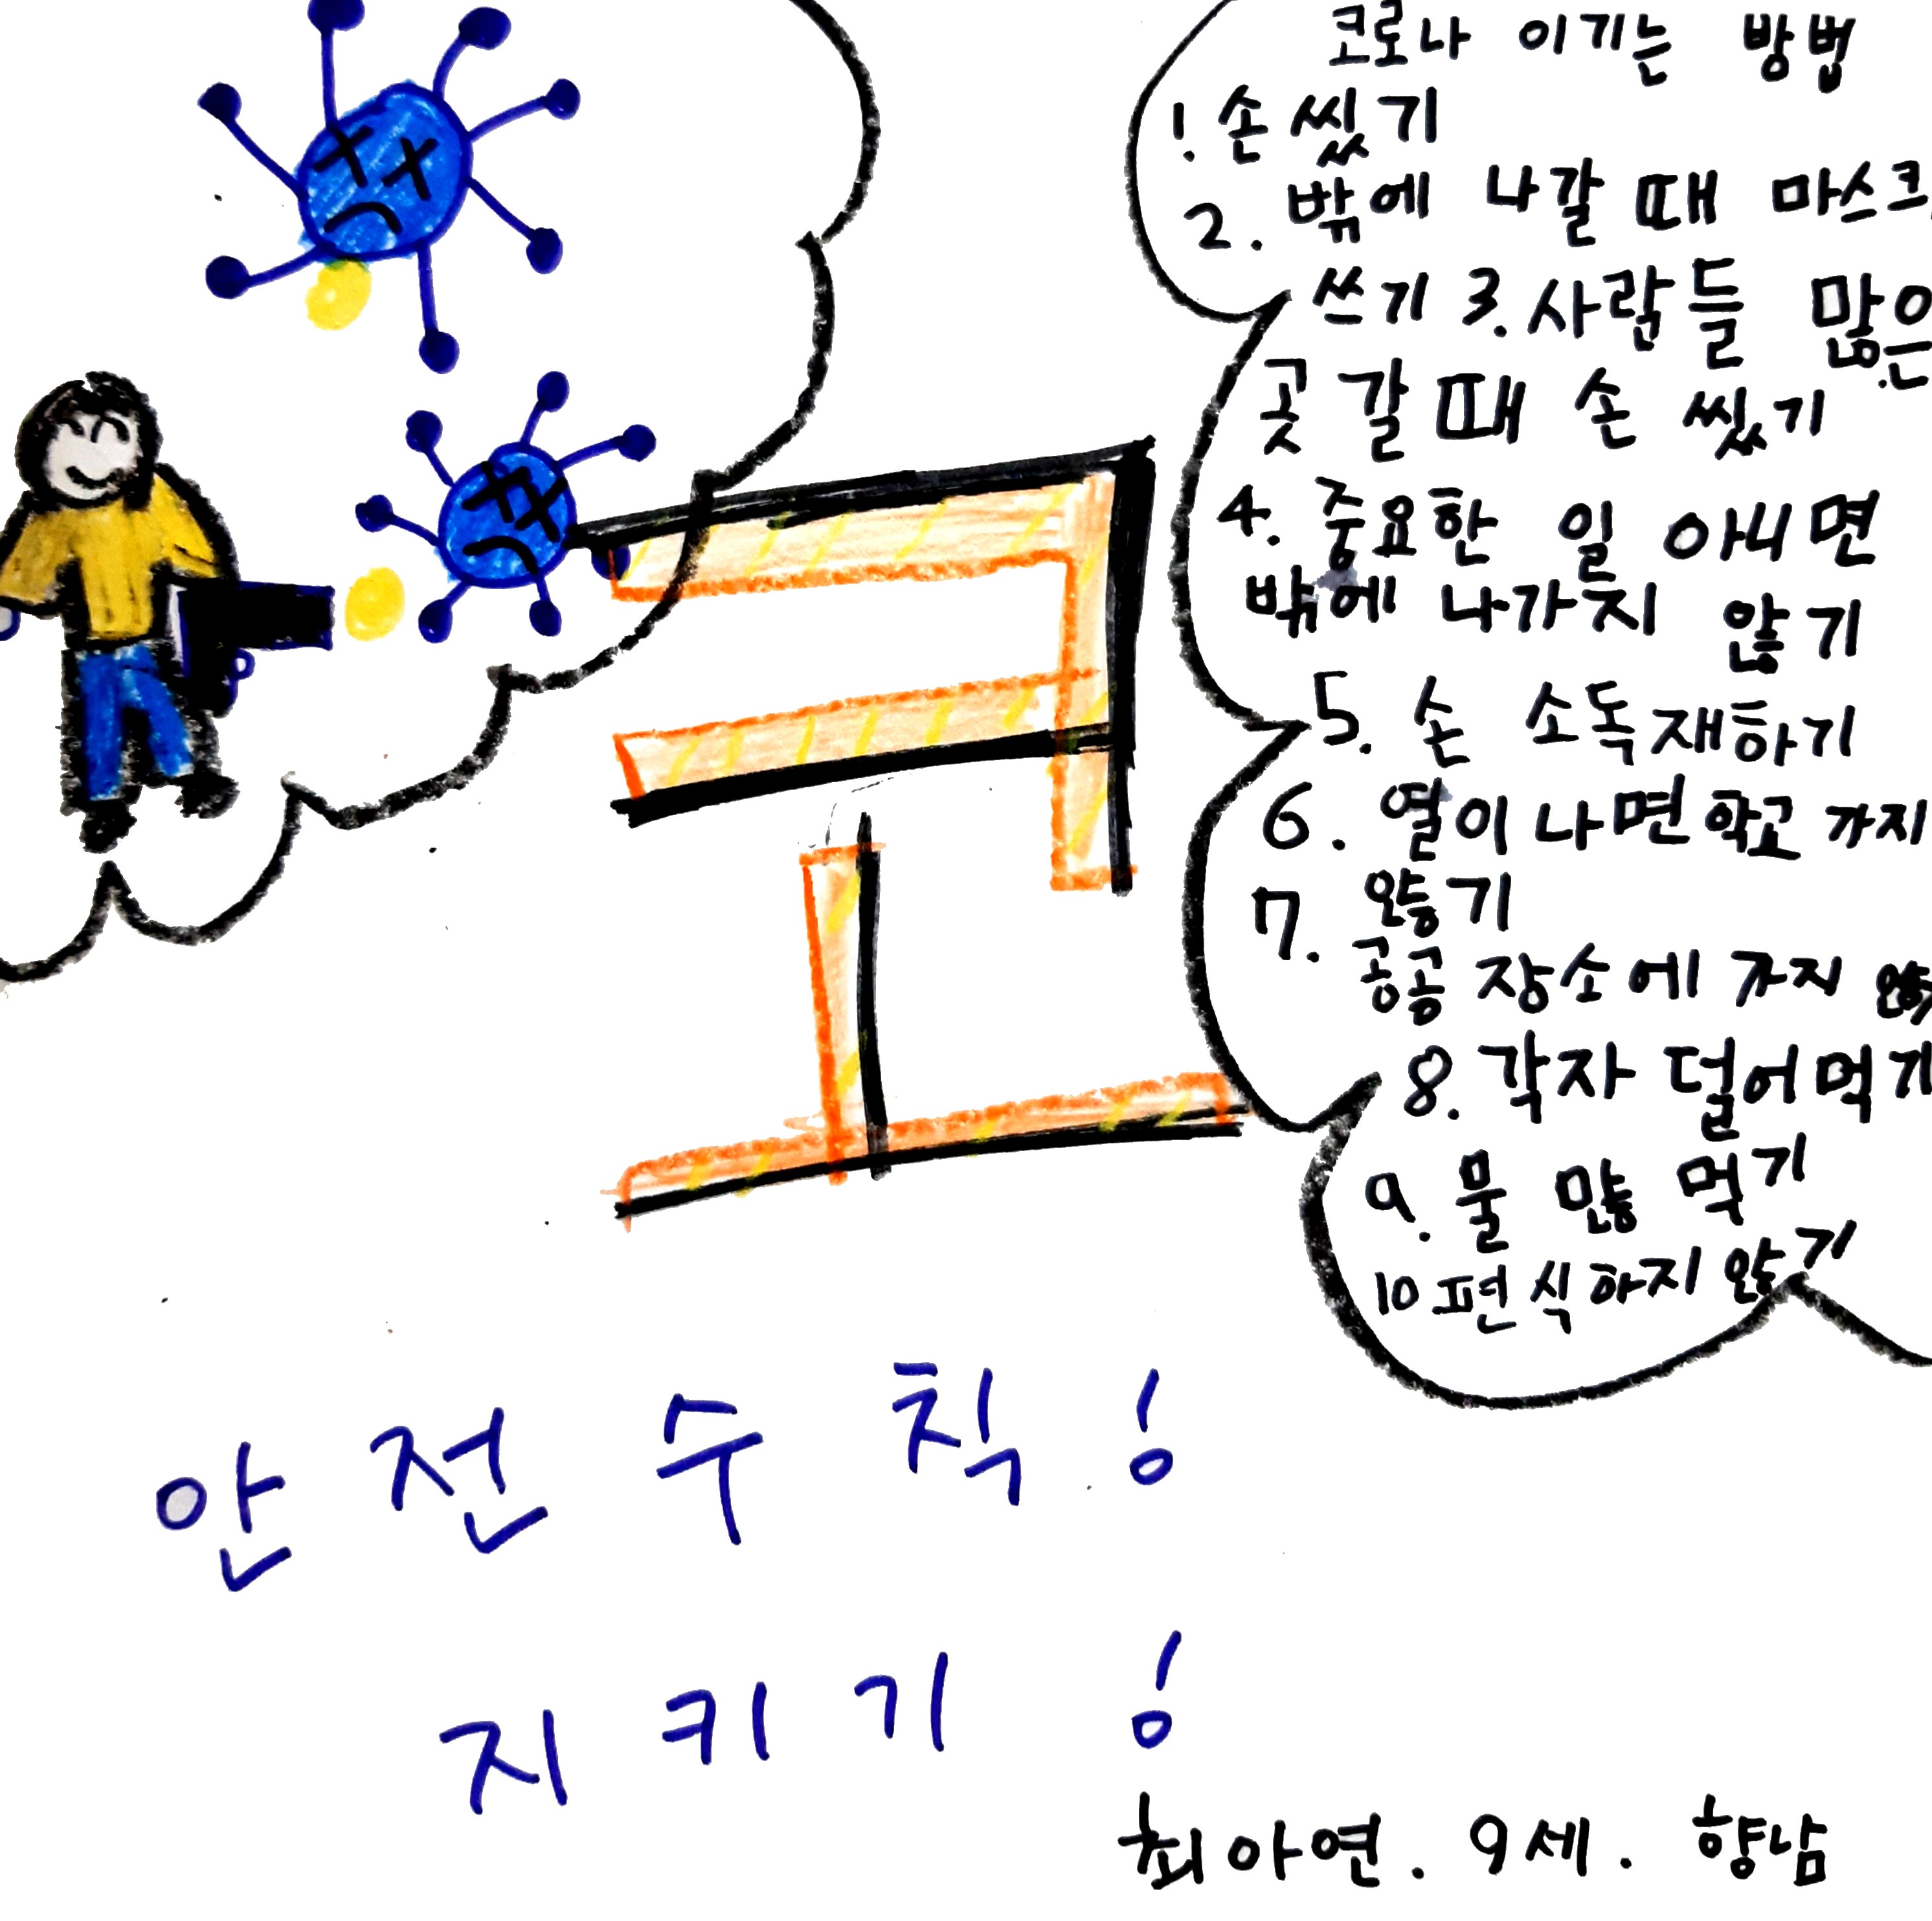 코로나 이기는 방법
1. 손 씼기
2. 밖에 나갈 때 마스크
쓰기 3. 사람들 많은
곳 갈 때 손 씼기
4. 중요한 일 아니면
밖에 나가지 않기
5. 손 소독재하기
6. 열이 나면 학교 가지
않기
7. 공공 장소에 가지
8. 각자 덜어먹기
9. 물 많이 먹기
10 편식하지 않기
코
안전수칙!
지키기!
최아연. 9세. 향남